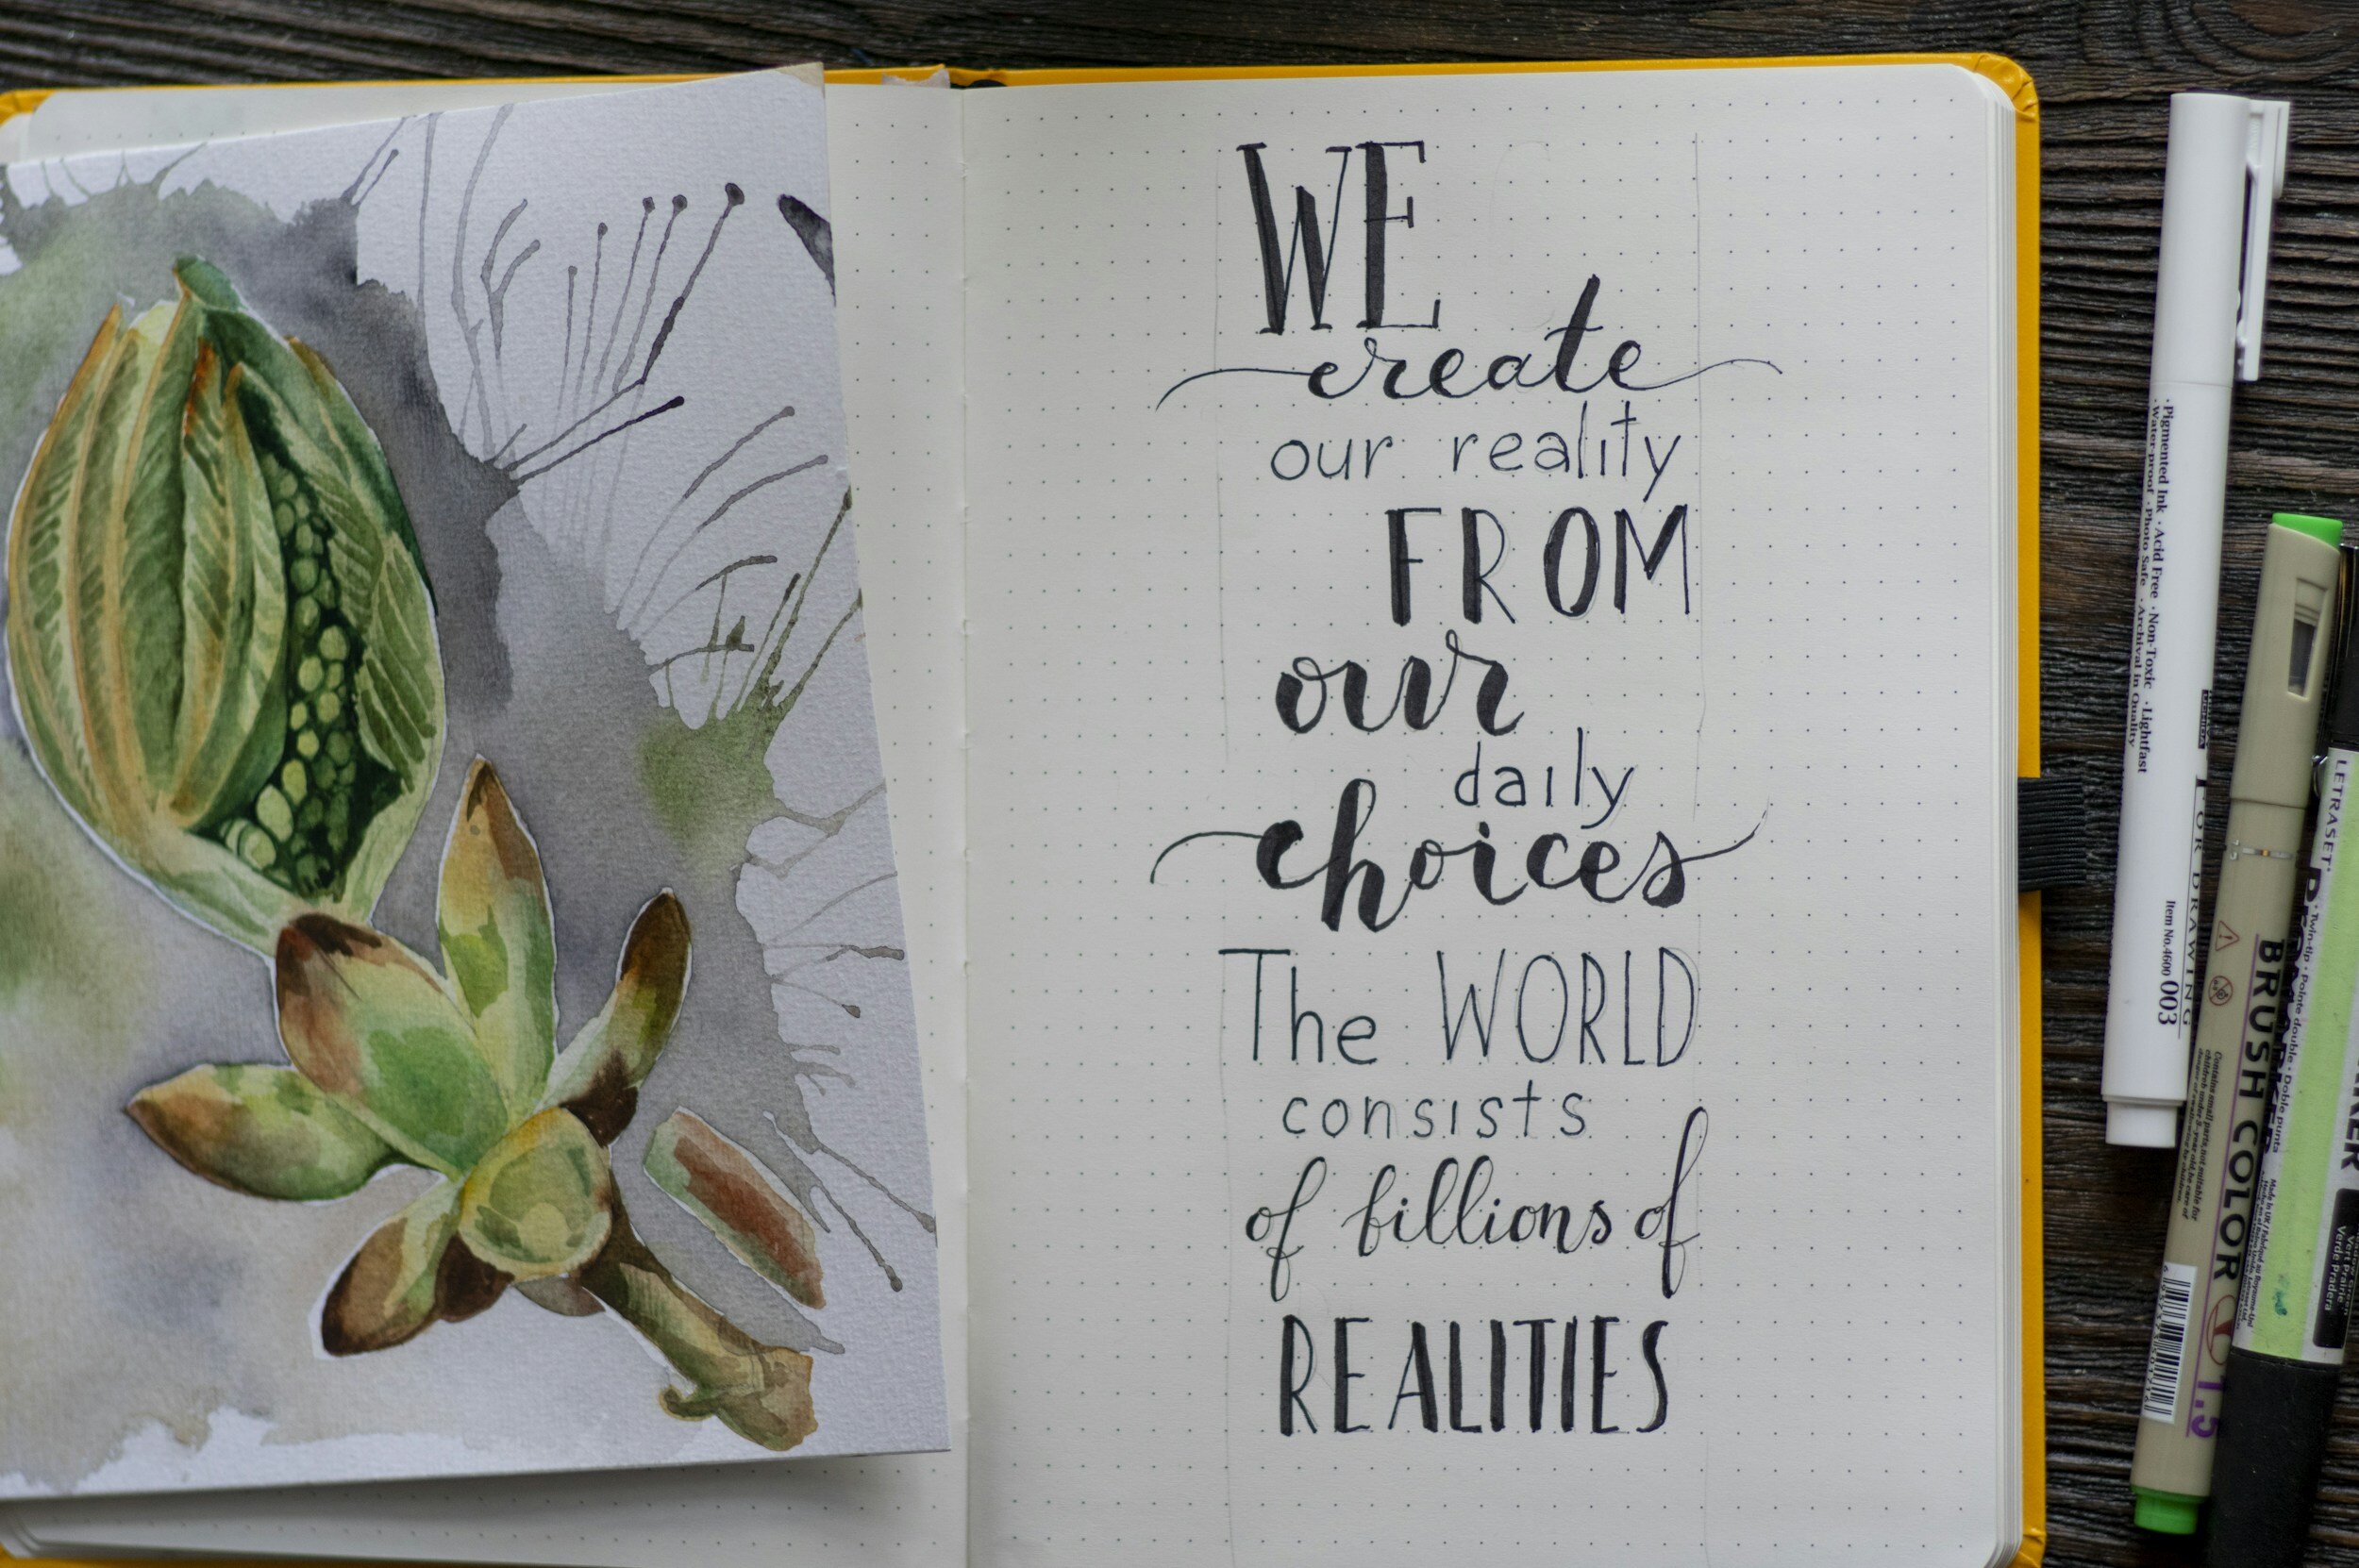 WE
create
our reality
FROM
our
daily
choices
The WORLD
consists
of billions of
REALITIES
· Pigmented Ink · Acid Free · Non-Toxic · Lightfast
· Water-proof · Photo Safe · Archival in Quality
FOR DRAWING
Item No.4600 003
BRUSH COLOR
1.5
LETRASET
· Twin-tip · Pointe double · Doble punta
Vert prairie
Verde Pradera